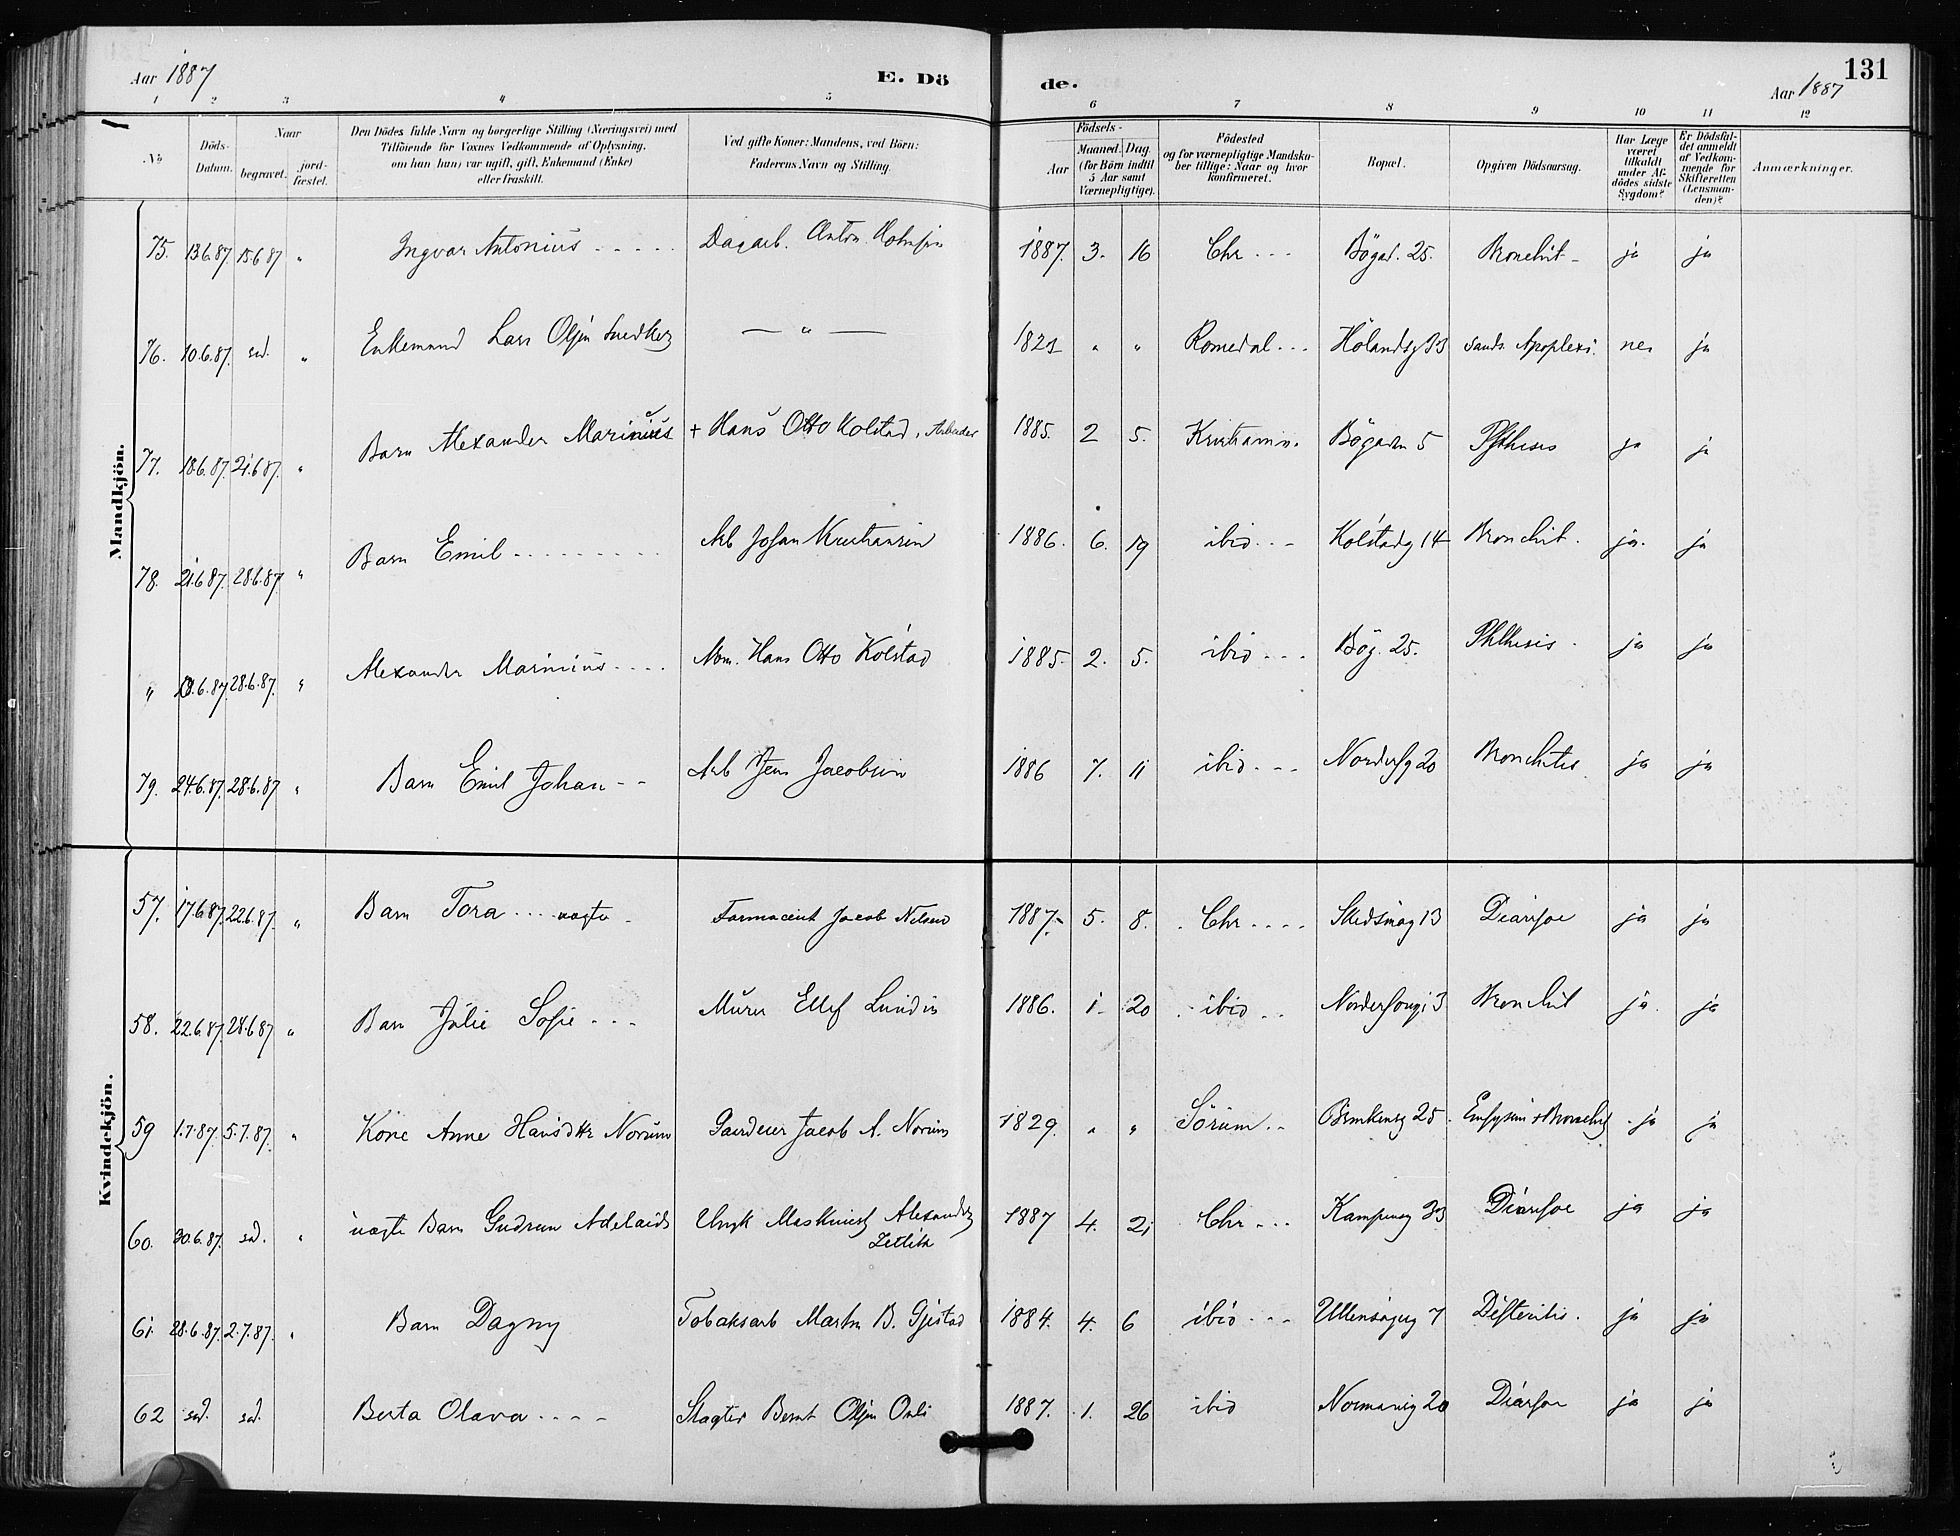 Aar 1887
E. Dö
de.
Aar 1887
131
1 2 3 4 5 6 7 8 9 10 11 12
No
Döds-Datum.
Naar
begravet.
jord-fæstet.
Den Dödes fulde Navn og borgerlige Stilling (Næringsvei) med
Tilföiende for Voxnes Vedkommende af Oplysning,
om han (hun) var ugift, gift, Enkemand (Enke)
eller fraskilt.
Ved gifte Koner: Mandens, ved Börn:
Faderens Navn og Stilling.
Födsels-
Aar
Maaned. Dag.
(for Börn indtil
5 Aar samt
Værnepligtige).
Födested
og for værnepligtige Mandska-
ber tillige: Naar og hvor
konfirmeret.
Bopæl.
Opgiven Dödsaarsag.
Har Læge
været
tilkaldt
under Af-
dödes sidste
Sygdom?
Er Dödsfal-
det anmeldt
af Vedkom-
mende for
Skifteretten
(Lensman-
den)?
Anmærkninger.
Mandkjön.
75. 13.6.87. 15.6.87 " Ingvar Antonius Dagarb. Anton 1887. 3. 16 Chr Bögad. 25. Bronchit ja ja
76. 10.6.87. sd. " Enkemand Lars Olsen Snedker — " — 1821 " " Romedal Hölandsg 13 Sands. Apoplexi. nei ja
77. 18.6.87. 21.6.87. " Barn Alexander Marinius + Hans Otto Kolstad, Arbeider 1885. 2 5. Kristiania. Bögaden 5 Phthisis ja ja
78. 21.6.87. 28.6.87. " Barn Emil Arb Johan Kristiansen 1886. 6. 19 ibid Kolstadg 14 Bronchit. ja. ja
" 18.6.87. 28.6.87. " Alexander Marinius Hans Otto Kolstad 1885. 2. 5. ibid Bög. 25. Phthisis. ja ja
79. 24.6.87. 28.6.87 " Barn Emil Johan Arb Jens Jacobsen 1886 7. 11 ibid 20 Bronchitis ja ja
Kvindekjön.
57. 17.6.87. 22.6.87. " Barn Tora uægte Farmaceut Jacob Nilsen 1887. 5. 8. Chr Skedsmog 13 Diarrhoe ja ja
58. 22.6.87. 28.6.87 " Barn Julie Sofie Murer Ellef Lundin 1886. 1. 20 ibid Bronchit ja. ja
59 1.7.87. 5.7.87. " Kone Anne Hansdtr Norum Gaardeier Jacob A. Norum 1829. " " Sörum 25. Emfysem + Bronchit ja ja
60. 30.6.87. sd. " uægte Barn Gudrun Adelaide Ungk Maskinist Alexander
Zetlitz 1887 4. 21 Chr Kampensg 33 Diarrhoe ja ja
61. 28.6.87. 2.7.87. " Barn Dagny Tobaksarb Martin B. Gjestad 1884. 4. 6 ibid Ullensagerg 7 Difteritis. ja ja
62 sd. sd. Berta Olava Slagter Bernt Olsen Onli 1887. 1. 26 ibid Normansg 20 Diarrhoe ja ja